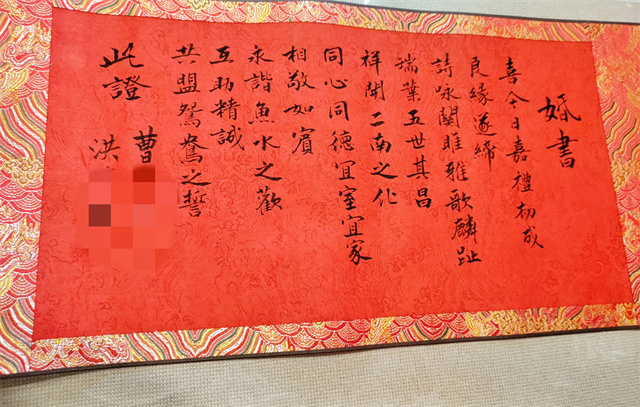 婚書
喜今日嘉禮初成
良緣遂締
詩咏關雎雅歌麟趾
瑞葉五世其昌
祥開二南之化
同心同德宜室宜家
相敬如賓
永諧魚水之歡
互助精誠
共盟鴛鴦之誓
此證
曹
洪